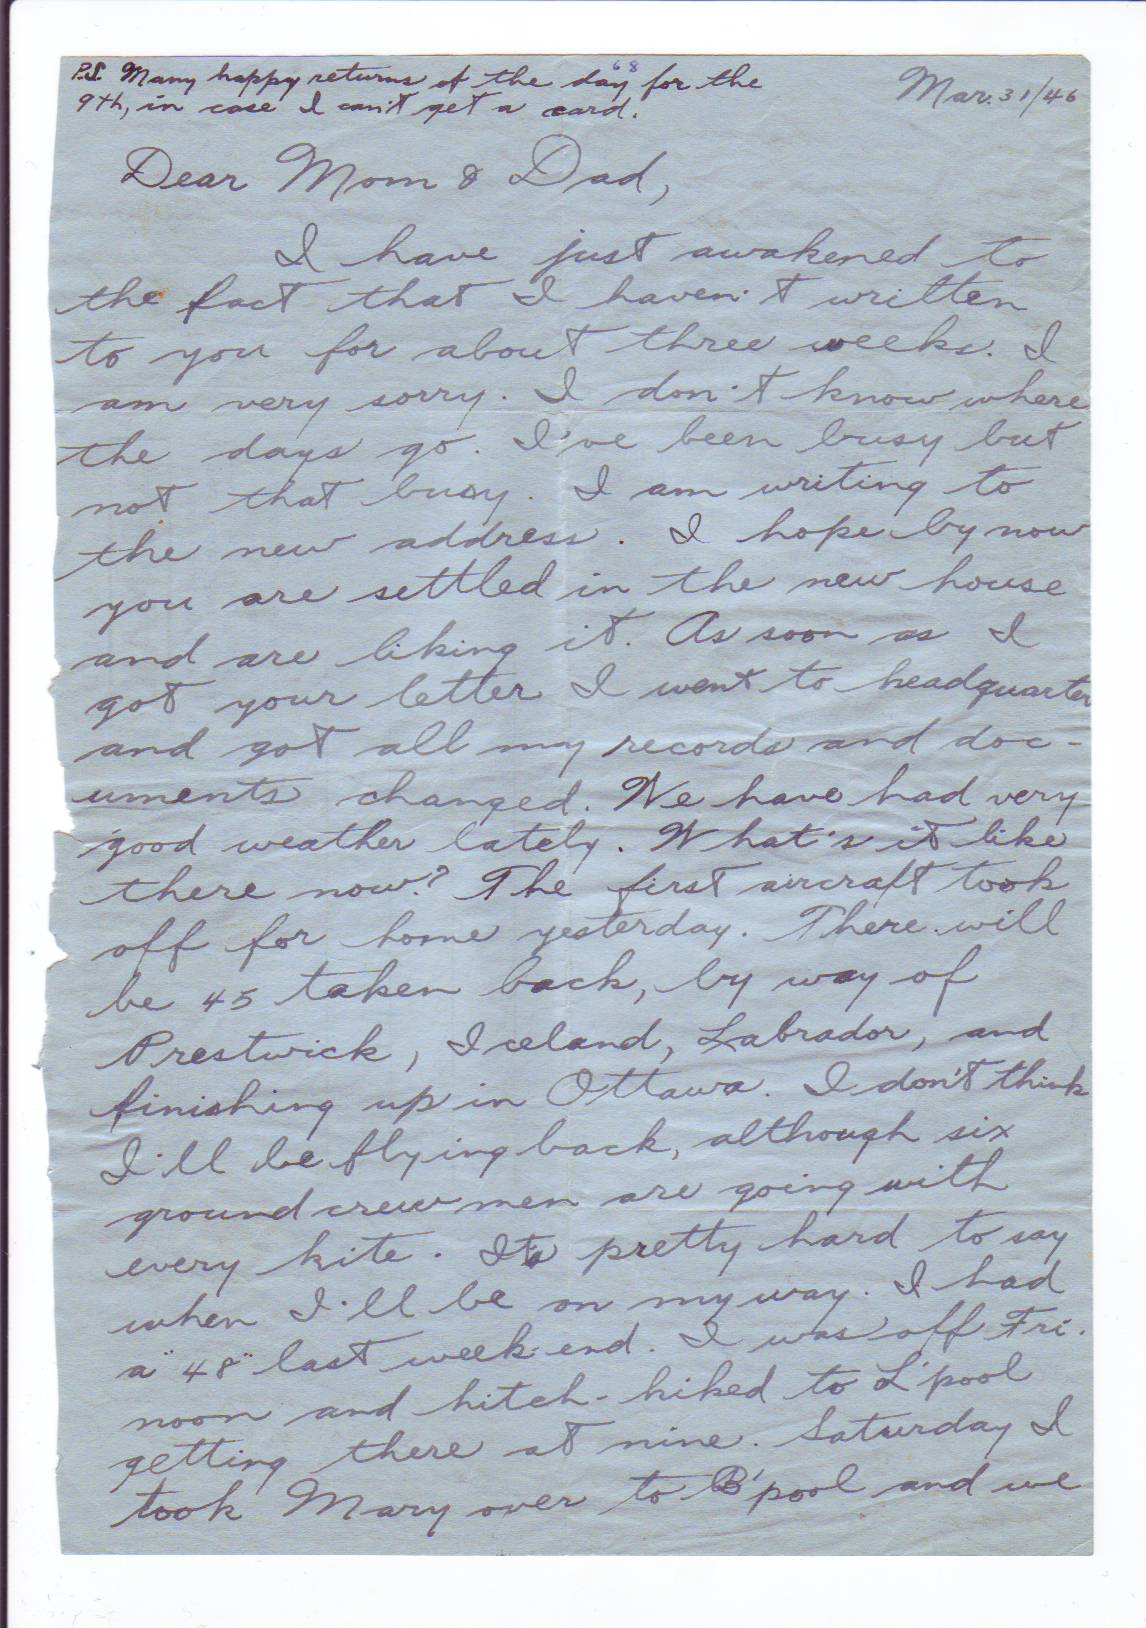 68
P.S. Many happy returns of the day for the
9th, in case I can't get a card.
Mar. 31/46
Dear Mom & Dad,
I have just awakened to
the fact that I haven't written
to you for about three weeks. I
am very sorry. I don't know where
the days go. I've been busy but
not that busy. I am writing to
the new address. I hope by now
you are settled in the new house
and are liking it. As soon as I
got your letter I went to headquarter
and got all my records and doc-
uments changed. We have had very
good weather lately. What's it like
there now? The first aircraft took
off for home yesterday. There will
be 45 taken back, by way of
Prestwick, Iceland, Labrador, and
finishing up in Ottawa. I don't think
I'll be flying back, although six
ground crew men are going with
every kite. Its pretty hard to say
when I'll be on my way. I had
a "48" last week-end. I was off Fri.
noon and hitch-hiked to L'pool
getting there at nine. Saturday I
took Mary over to B'pool and we